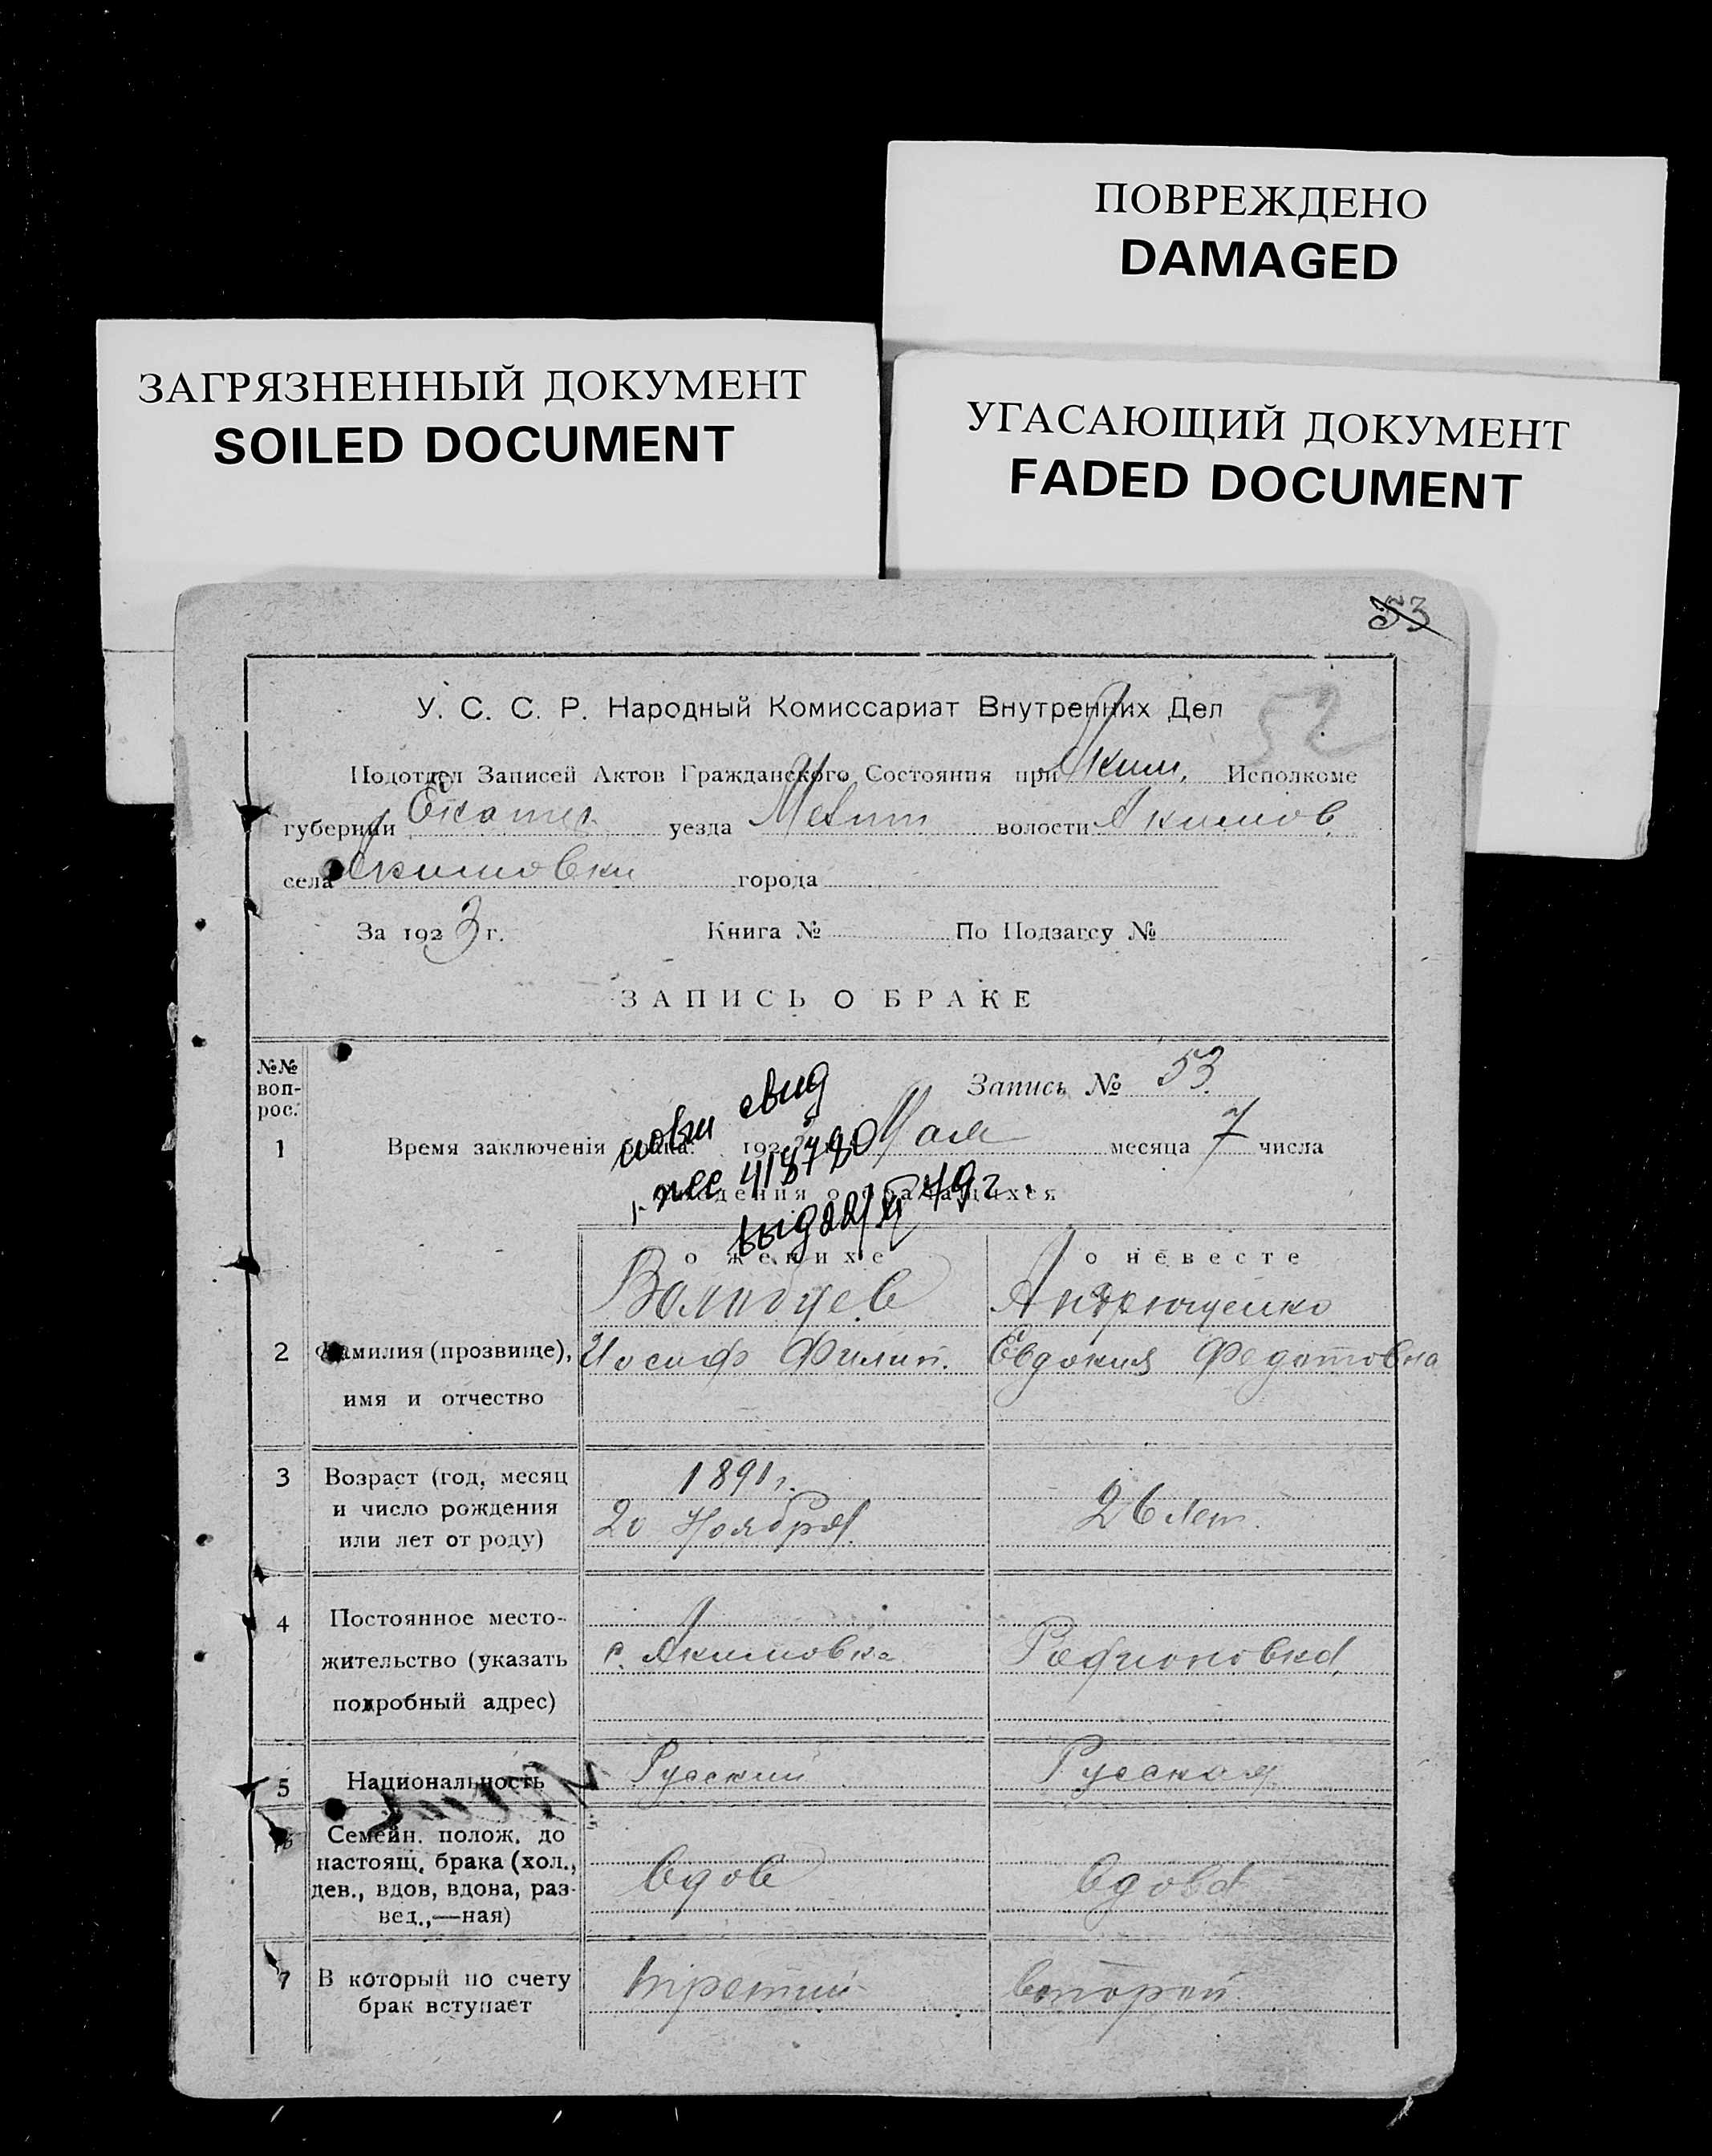 ПОВРЕЖДЕНО
DAMAGED
ЗАГРЯЗНЕННЫЙ ДОКУМЕНТ
SOILED DOCUMENT
УГАСАЮЩИЙ ДОКУМЕНТ
FADED DOCUMENT
53
52
У. С. С. Р. Народный Комиссариат Внутренних Дел
Подотдел Записей Актов Гражданского Состояния при Яким. Исполкоме
губернии Екатер уезда Мелит волости Якимов.
села Якимовки города
За 1923 г. Книга № По Подзагсу №
ЗАПИСЬ О БРАКЕ
№№ воп-рос.
Запись № 53.
1 Время заключенія брака: 192 Мая месяца 7 числа
свид
Сведения о брачащихся
о женихе о невесте
Андрющенко
2 Фамилия (прозвище), Иосиф Филип. Евдокия Федотовна
имя и отчество
3 Возраст (год, месяц 1891 г.
и число рождения 20 Ноября 26 лет.
или лет от роду)
4 Постоянное место-
жительство (указать с. Якимовка Родионовка
подробный адрес)
5 Национальность Русский Русская
6 Семейн. полож. до
настоящ. брака (хол., вдов вдова
дев., вдов, вдова, раз-
вед.,—ная)
7 В который по счету третий второй
брак вступает